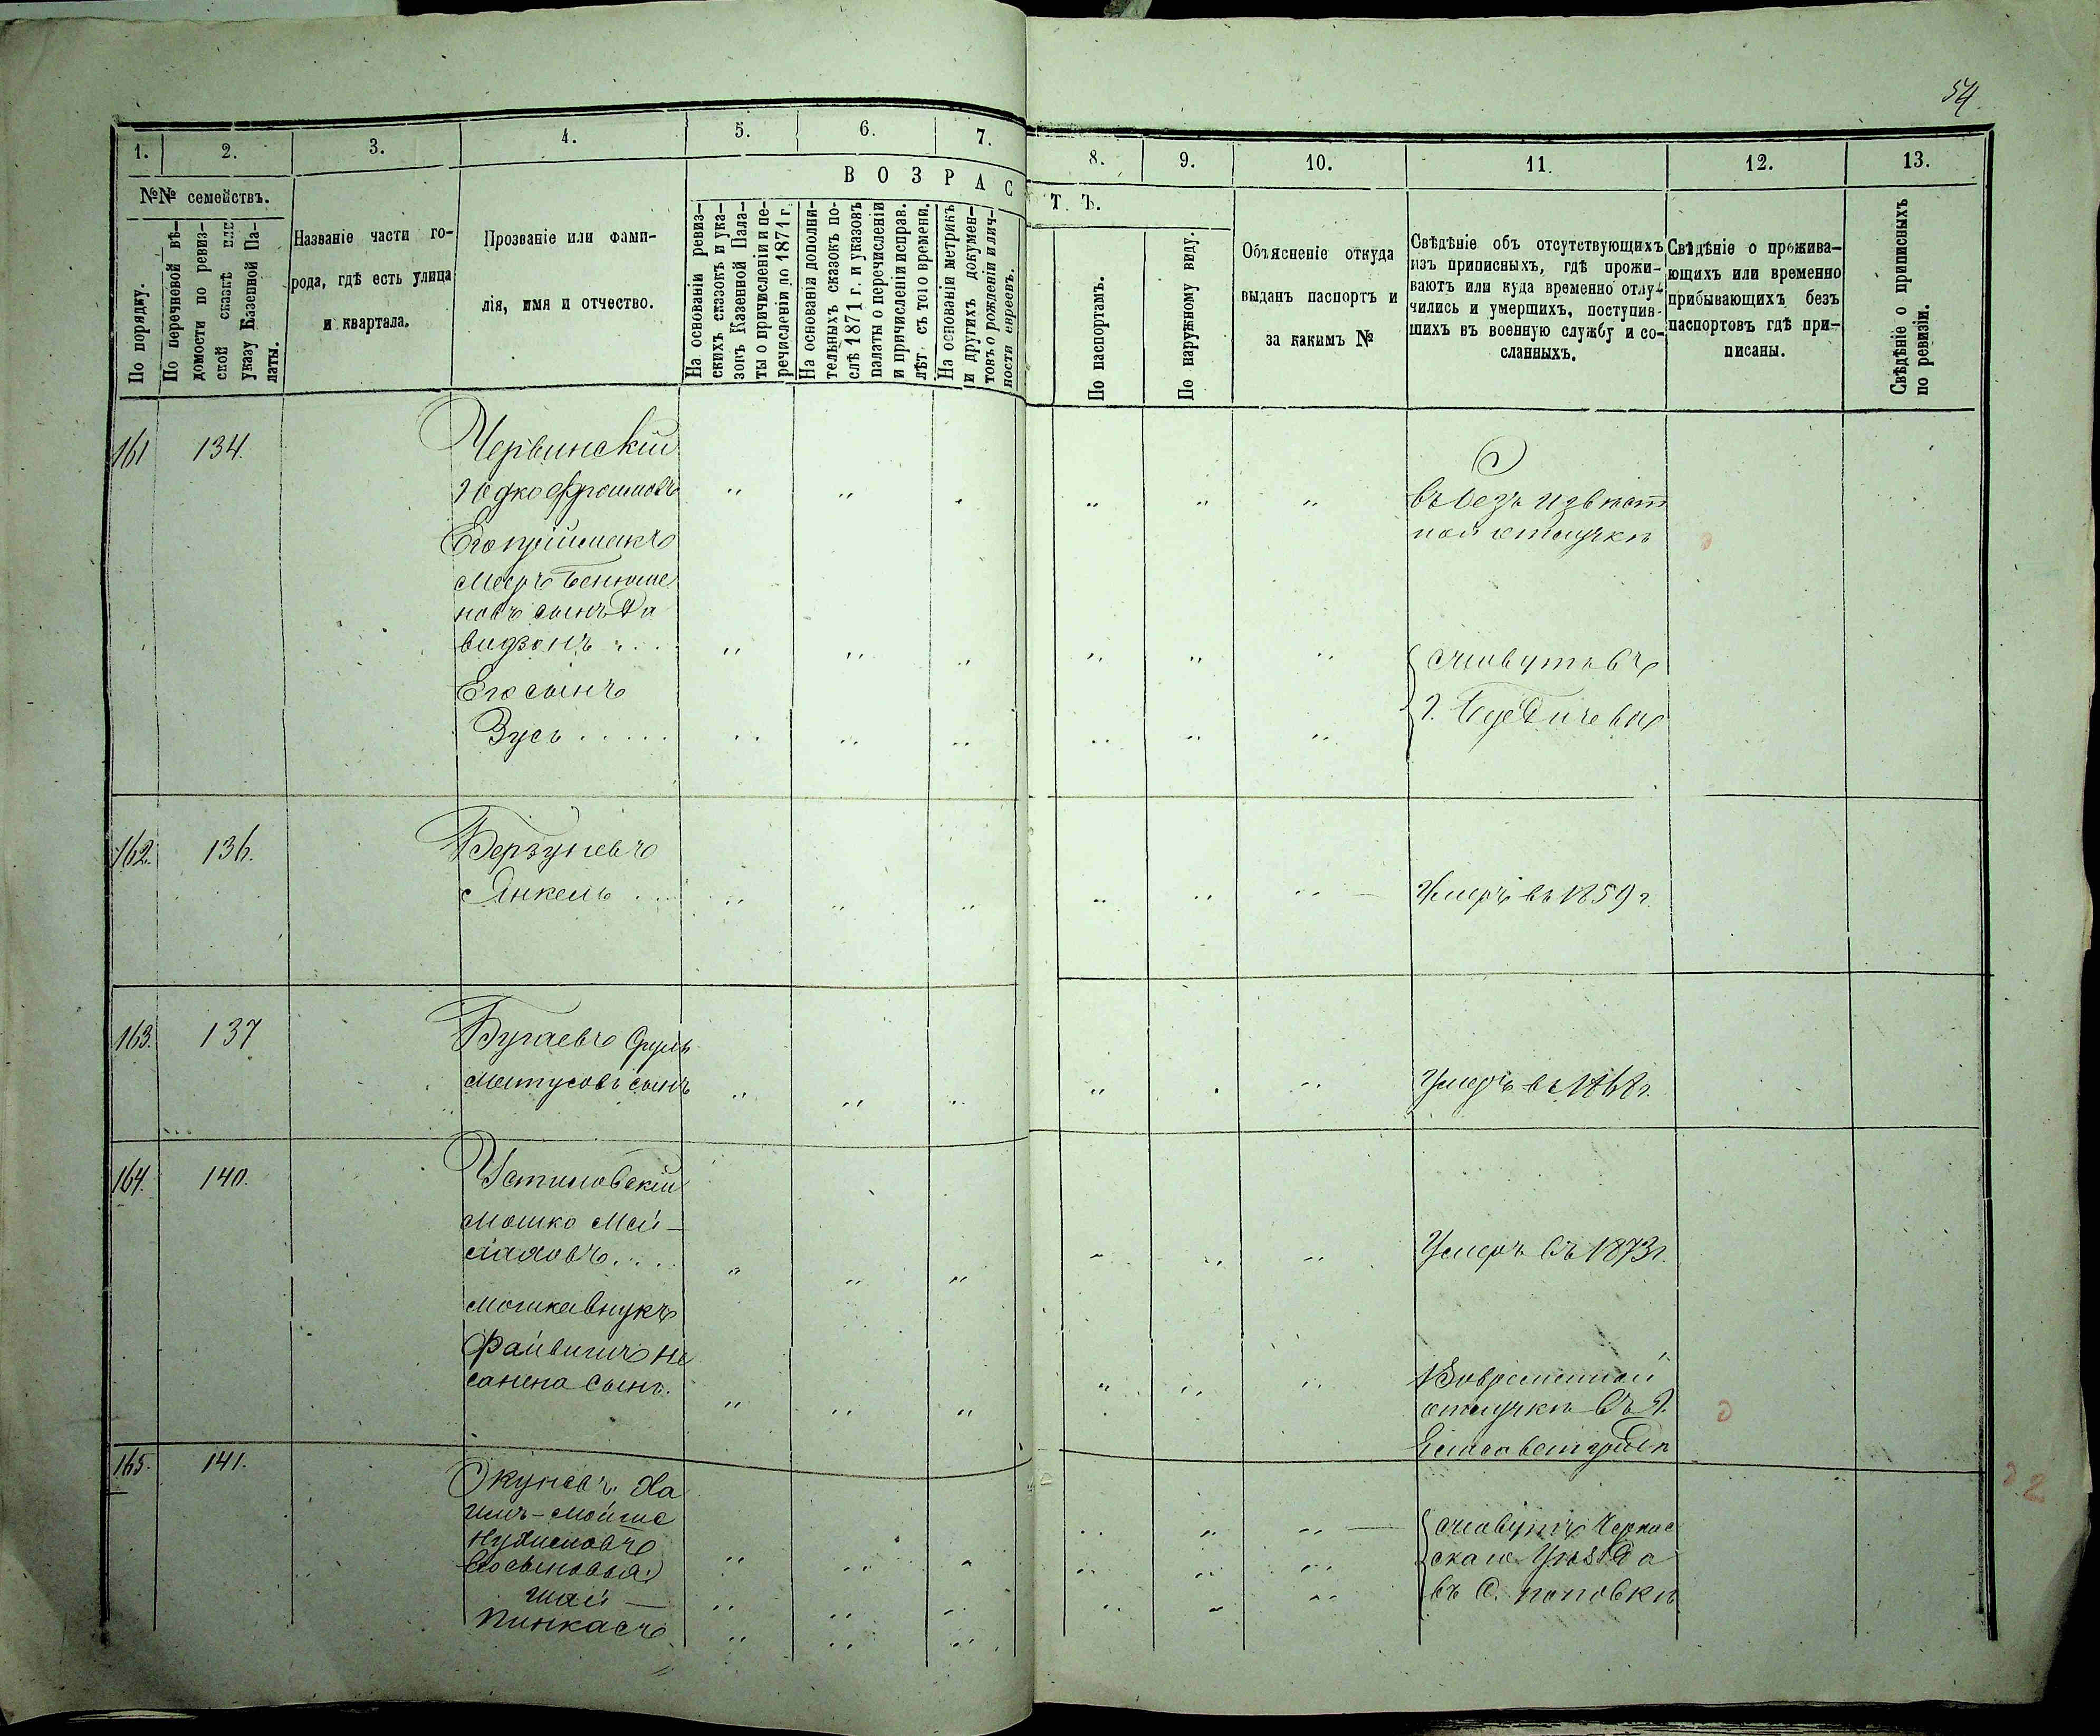 54
1.
2.
3.
4.
5.
6.
7.
8.
9.
10.
11.
12.
13.
№№ семействъ.
По порядку.
По перечневой вѣ-
домости по ревиз-
ской сказкѣ или
указу Казенной Па-
латы.
Названіе части го-
рода, гдѣ есть улица
и квартала.
Прозваніе или фами-
лія, имя и отчество.
ВОЗРАС
Т Ъ.
На основаніи ревиз-
скихъ сказокъ и ука-
зовъ Казенной Пала-
ты о причисленіи и пе-
речисленіи до 1871 г.
На основаніи дополни-
тельныхъ сказокъ по-
слѣ 1871 г. и указовъ
палаты о перечисленіи
и причисленіи исправ.
лѣт. съ того времени.
На основаніи метрикъ
и другихъ докумен-
товъ о рожденіи и лич-
ности евреевъ.
По паспортамъ.
По наружному виду.
Объясненіе откуда
выданъ паспортъ и
за какимъ №
Свѣдѣніе объ отсутствующихъ
изъ приписныхъ, гдѣ прожи-
ваютъ или куда временно отлу-
чились и умершихъ, поступив-
шихъ въ военную службу и со-
сланныхъ.
Свѣдѣніе о прожива-
ющихъ или временно
прибывающихъ безъ
паспортовъ гдѣ при-
писаны.
Свѣдѣніе о приписныхъ
по ревизіи.
161 134.
Червинскій
Юдко
Его пріймакъ
Мееръ
новъ сынъ Да
видзонъ
Его сынъ
Зусь
въ безъ извѣст
ной отлучкѣ
живутъ въ
г. Бердичевѣ
162. 136.
Берзуневъ
Янкель
Умеръ въ 1859 г.
163. 137
Бугаевъ Сруль
Матусовъ сынъ
Умеръ въ
164. 140.
Устиловскій
Мошко Мей-
Мошка внукъ
Файвишъ Не
санена сынъ.
Умеръ въ 1873 г.
Вовременной
отлучкѣ въ г.
Елисаветградѣ
165. 141.
Окуневъ Ха
имъ-Мойше
Его сыновья:
Шай
Пинкасъ
живутъ Черкас
скаго Уѣзда
въ С. поповкѣ
2